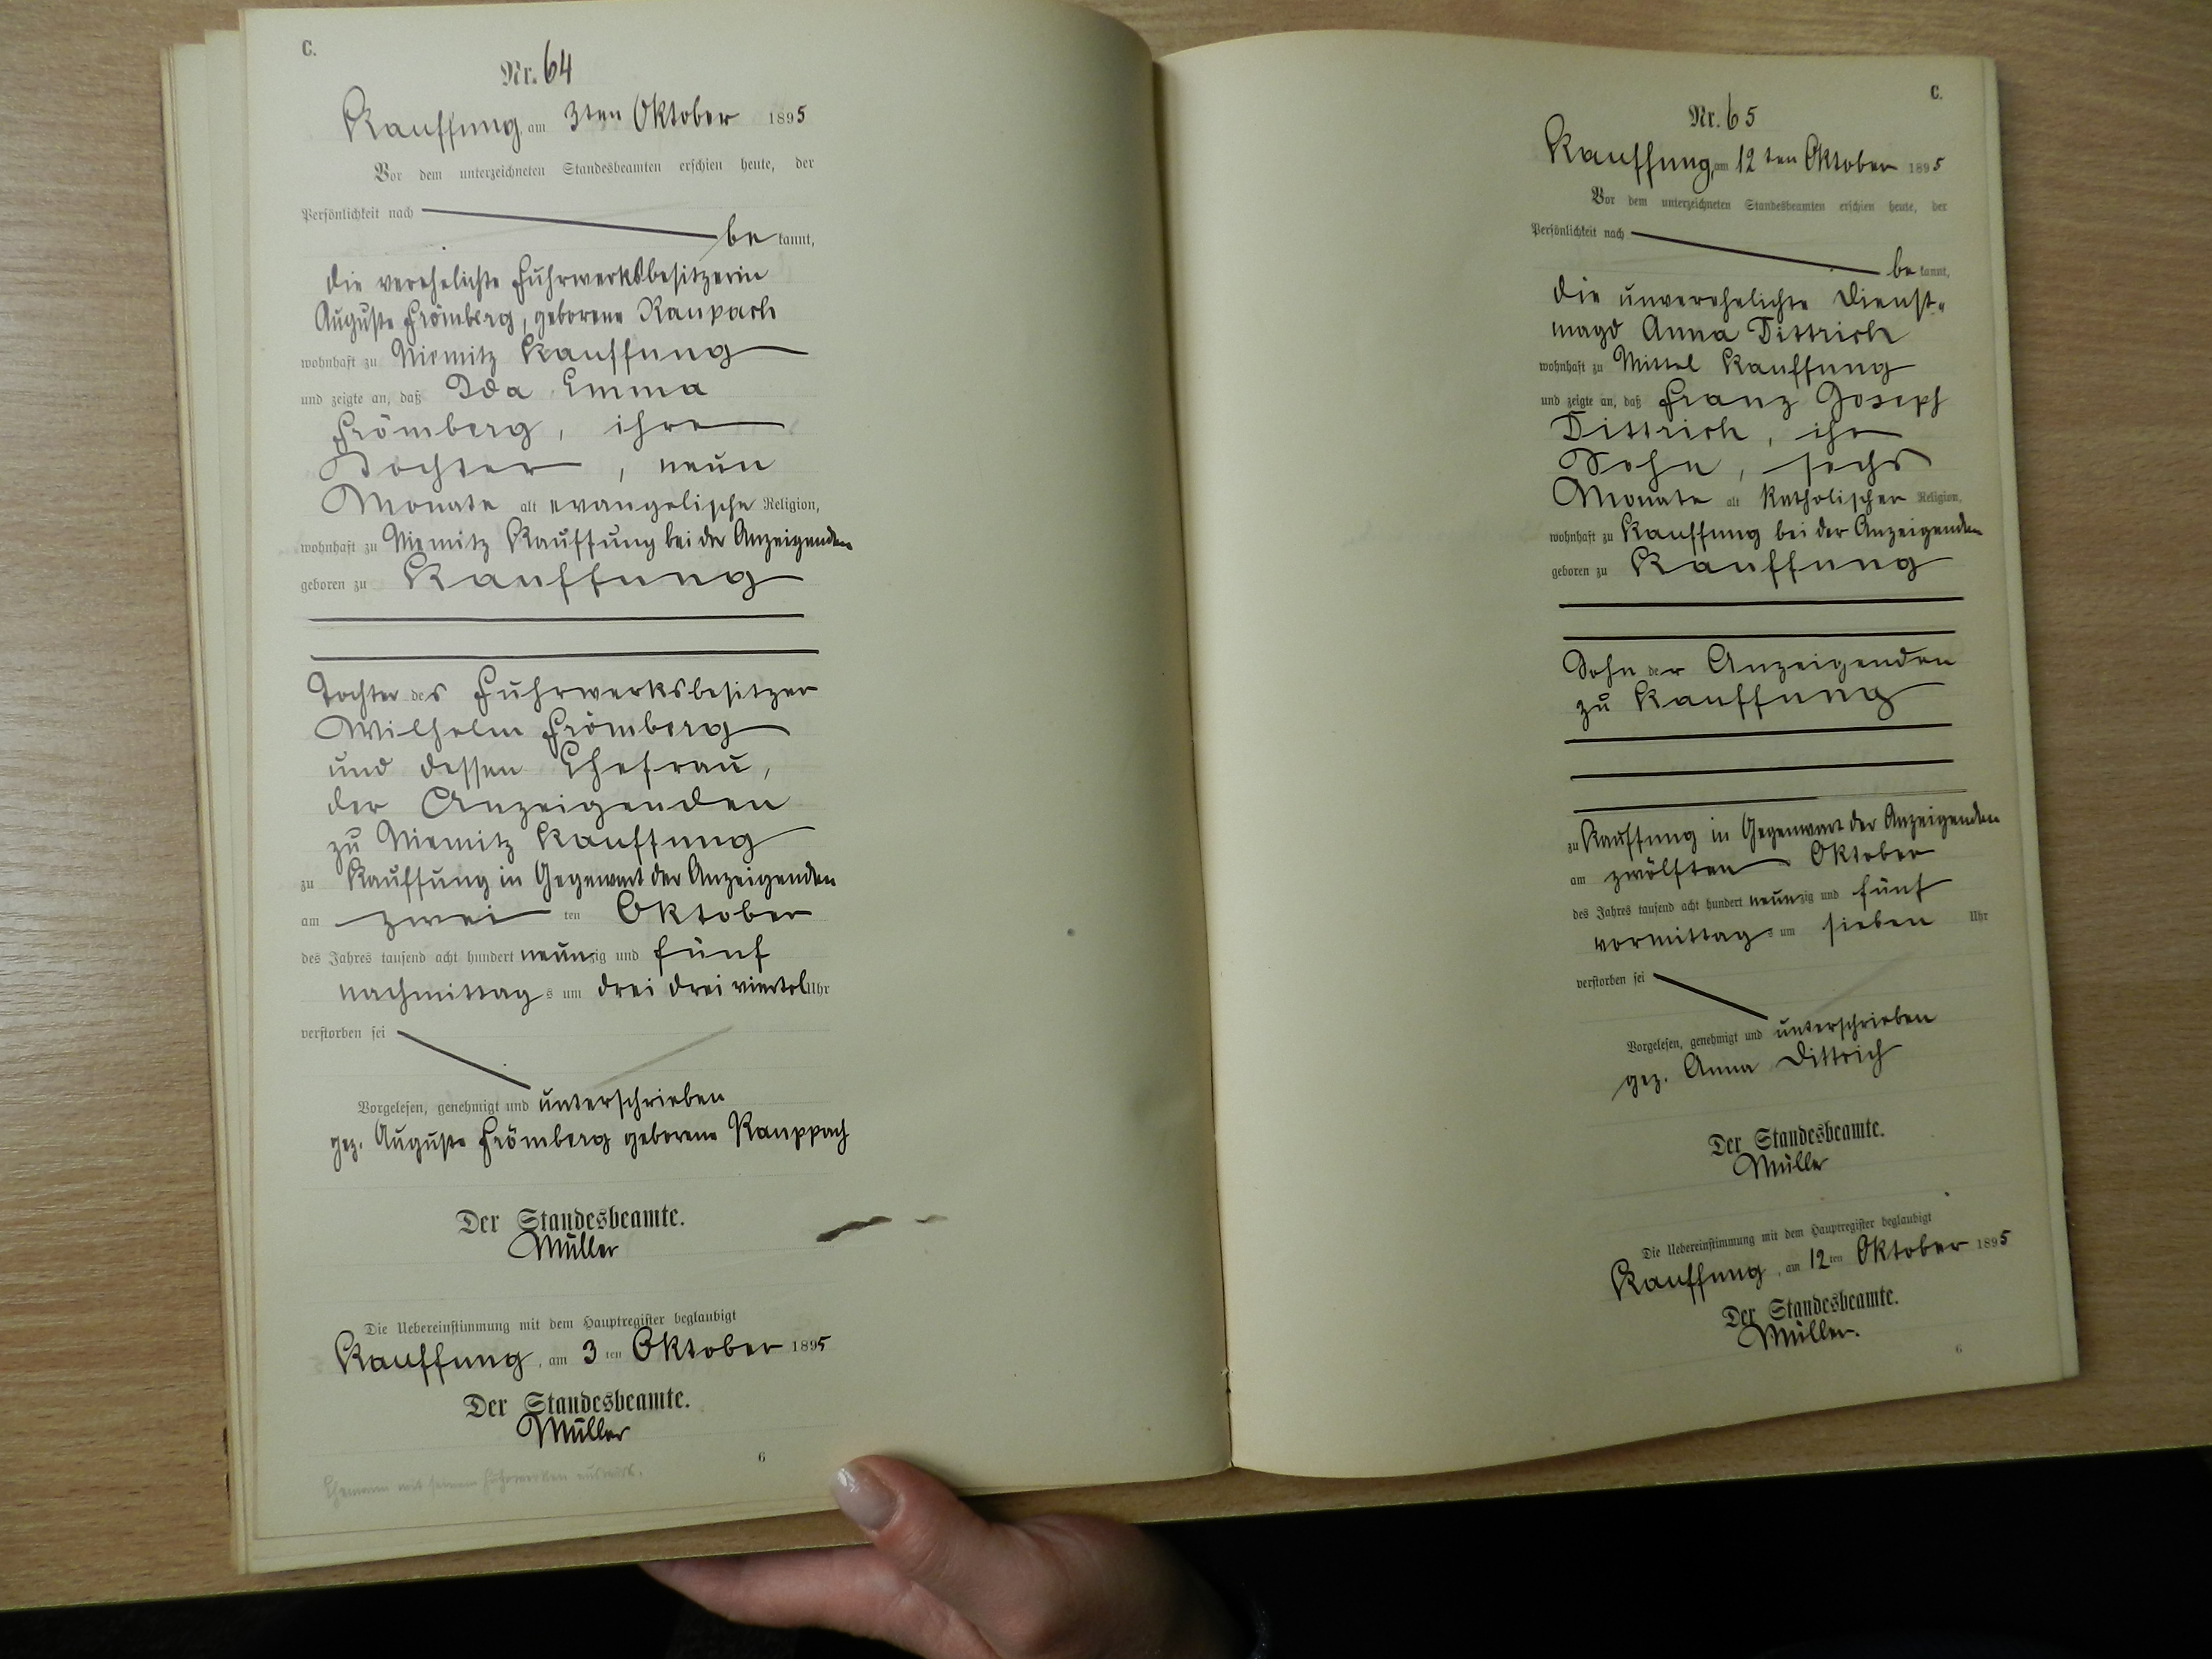 C.
Nr. 64
Kauffung am 3ten Oktober 1895
Vor dem unterzeichneten Standesbeamten erschien heute, der
Persönlichkeit nach
bekannt,
die verehelichte Fuhrwerksbesitzerin
Auguste Frömberg, geborene Raupach
wohnhaft zu Niemitz Kauffung
und zeigte an, daß Ida Emma
Frömberg, ihre
Tochter, neun
Monate alt evangelische Religion,
wohnhaft zu Niemitz Kauffung bei der Anzeigenden
geboren zu Kauffung
Tochter des Fuhrwerksbesitzer
Wilhelm Frömberg
und dessen Ehefrau,
der Anzeigenden
zu Niemitz Kauffung
zu Kauffung in Gegenwart der Anzeigenden
am zweiten Oktober
des Jahres tausend acht hundert neunzig und fünf
nachmittags um drei drei viertel Uhr
verstorben sei
Vorgelesen, genehmigt und unterschrieben
gez. Auguste Frömberg geborene Rauppach
Der Standesbeamte.
Müller
Die Uebereinstimmung mit dem Hauptregister beglaubigt
Kauffung, am 3ten Oktober 1895
Der Standesbeamte.
Müller
6
Ehemann mit seinem Fuhrwerken
C.
Nr. 65
Kauffung, am 12ten Oktober 1895
Vor dem unterzeichneten Standesbeamten erschien heute, der
Persönlichkeit nach
bekannt,
die unverehelichte Dienst-
magd Anna Dittrich
wohnhaft zu Mittel Kauffung
und zeigte an, daß Franz Joseph
Dittrich, ihr
Sohn, sechs
Monate alt katholischer Religion,
wohnhaft zu Kauffung bei der Anzeigenden
geboren zu Kauffung
Sohn der Anzeigenden
zu Kauffung
zu Kauffung in Gegenwart der Anzeigenden
am zwölften Oktober
des Jahres tausend acht hundert neunzig und fünf
vormittags um sieben Uhr
verstorben sei
Vorgelesen, genehmigt und unterschrieben
gez. Anna Dittrich
Der Standesbeamte.
Müller
Die Uebereinstimmung mit dem Hauptregister beglaubigt
Kauffung, am 12ten Oktober 1895
Der Standesbeamte.
Müller.
6